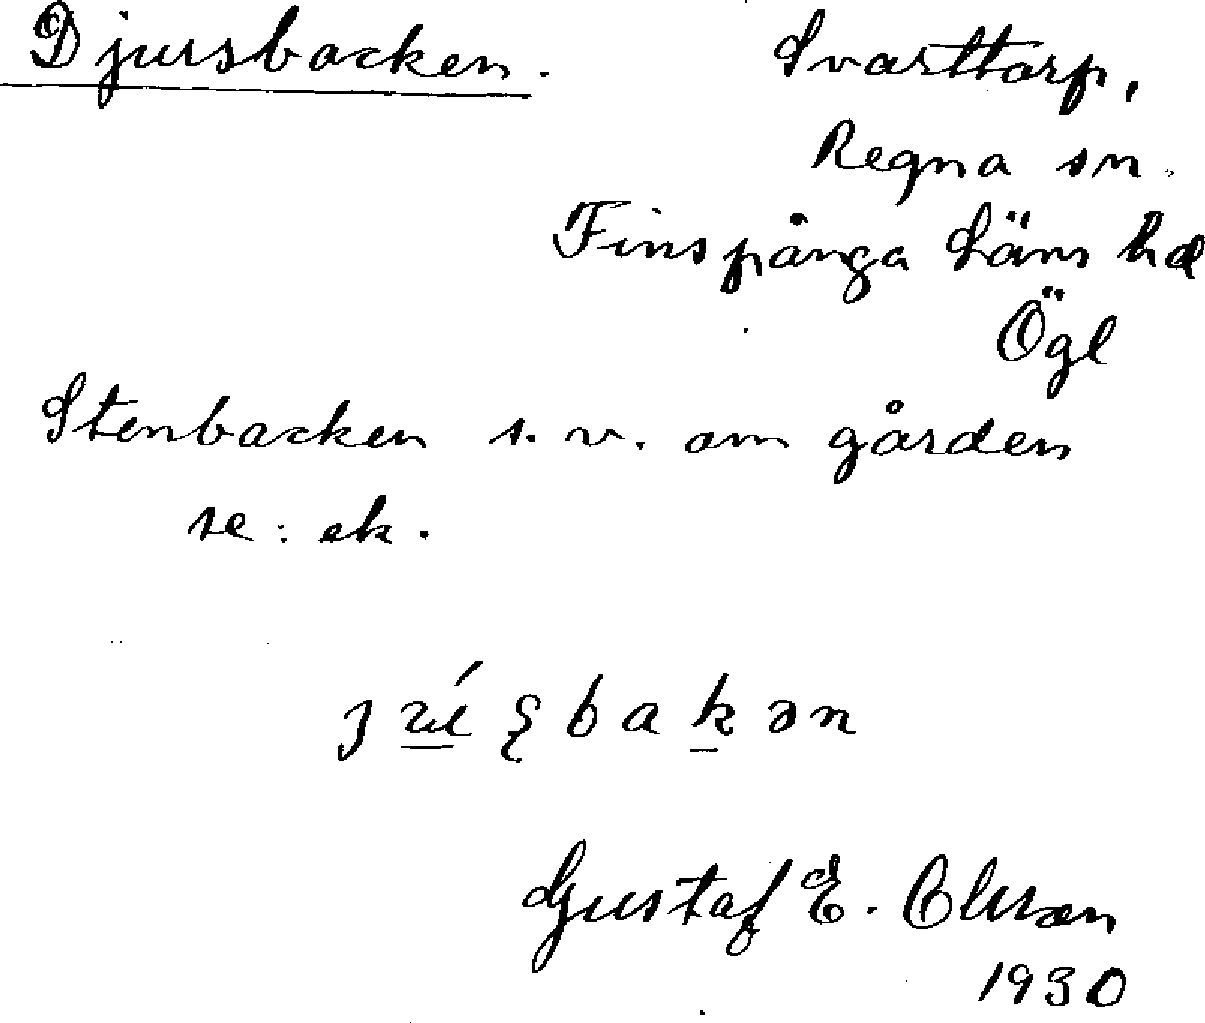 Djursbacken.
Svarttorp,
Regna sn.
Finspånga Läns hd
Ögl
Stenbacken s.v. om gården
se: ek.
Gustaf E.
1930